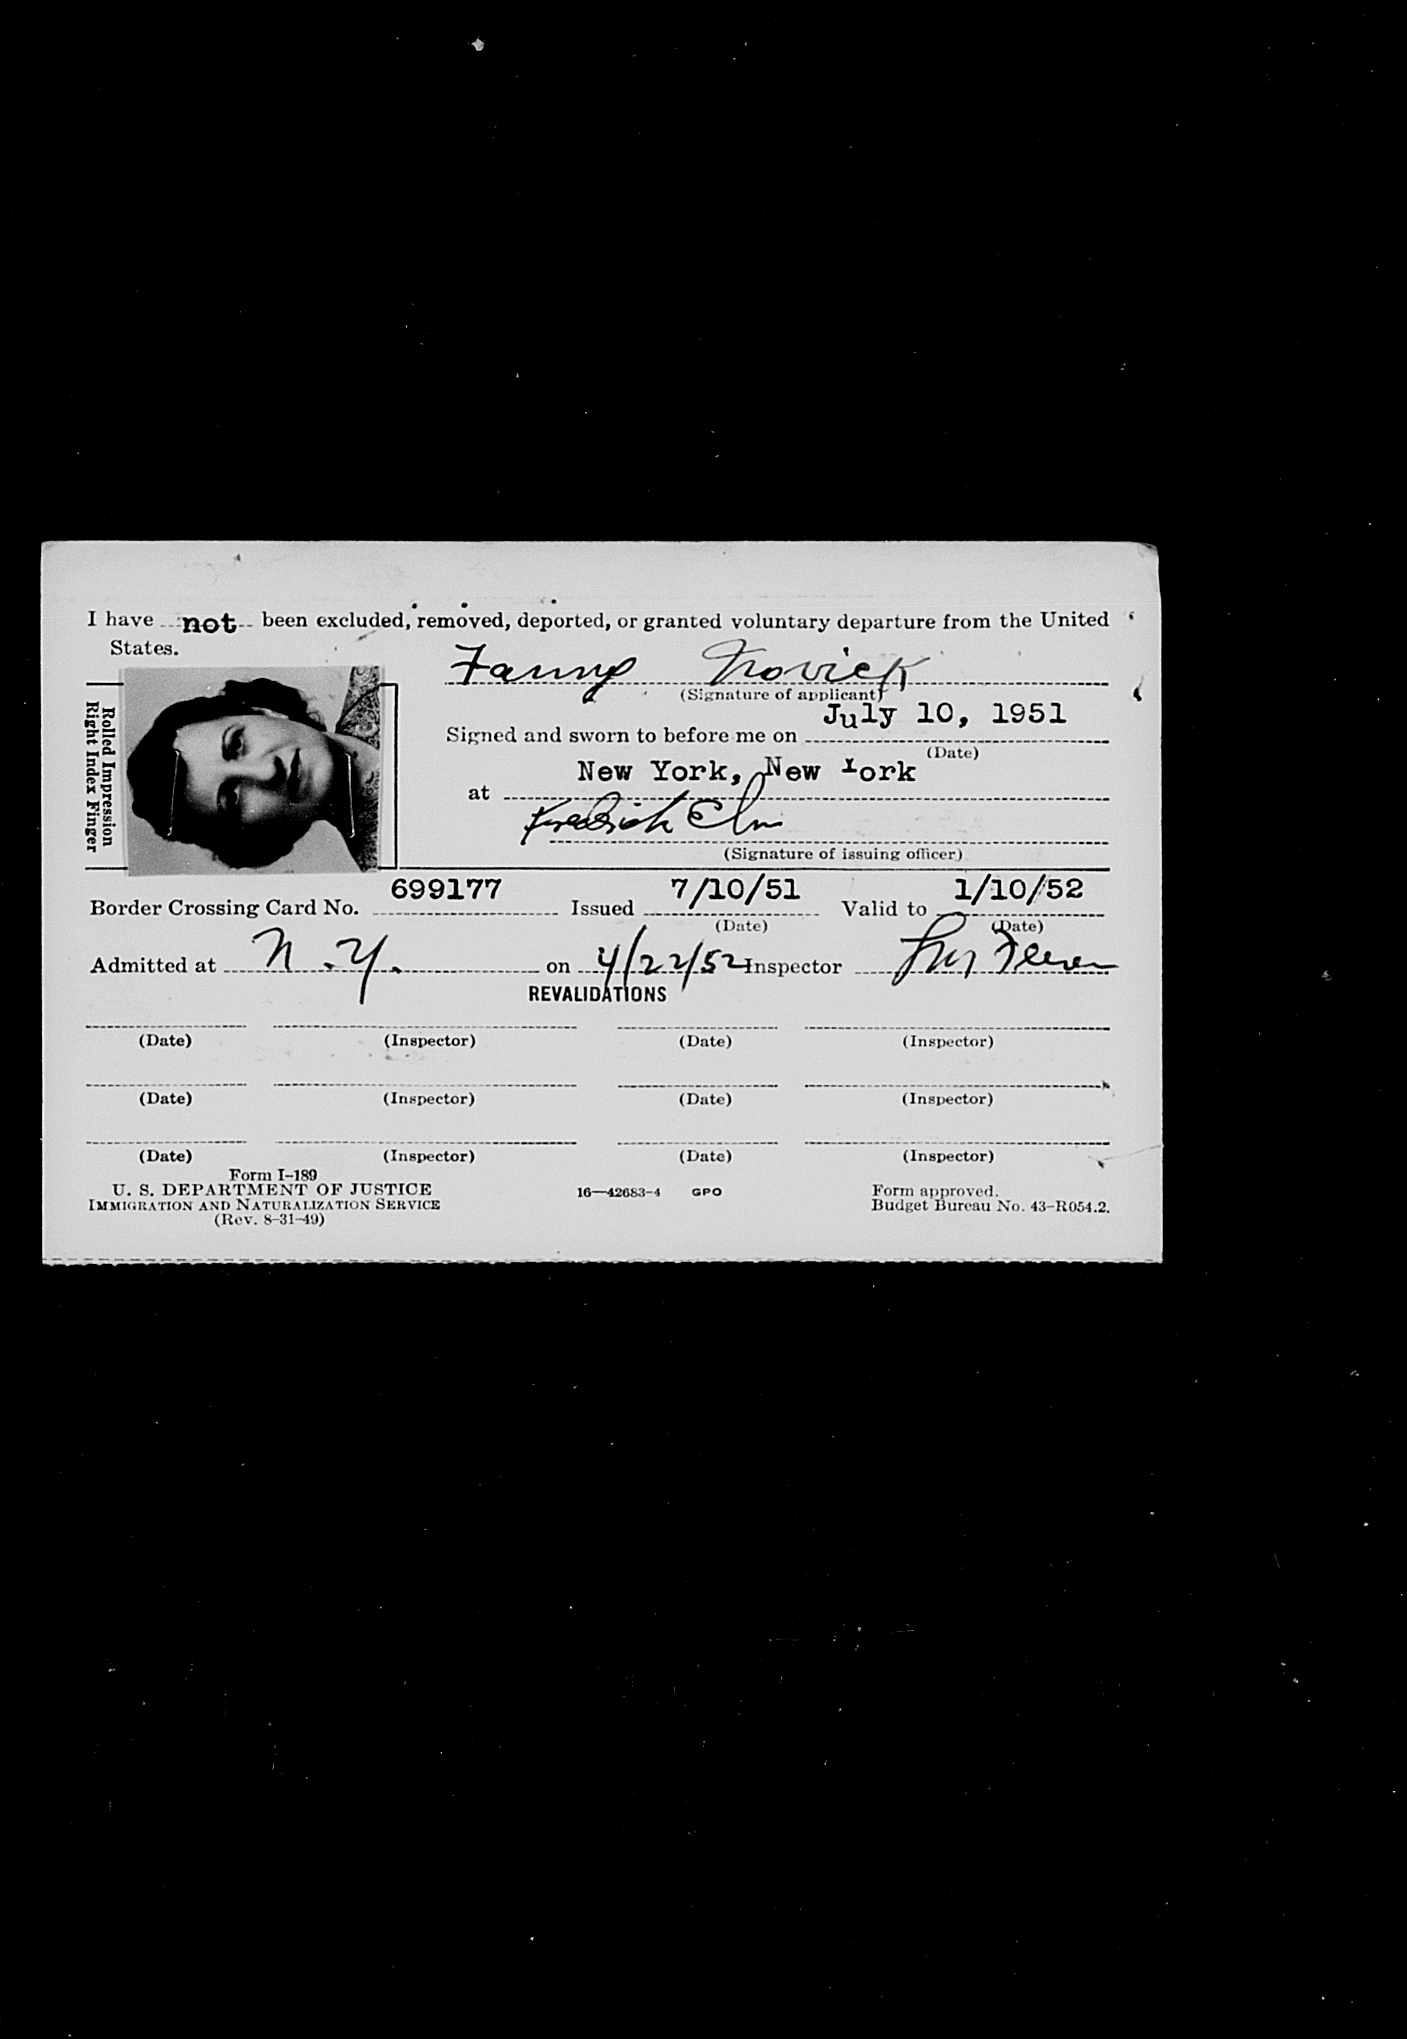 I have not been excluded, removed, deported, or granted voluntary departure from the United
States.
Fanny Novick
(Signature of applicant)
Rolled Impression
Right Index Finger
July 10, 1951
Signed and sworn to before me on
(Date)
New York, New York
at
(Signature of issuing officer)
699177 7/10/51 1/10/52
Border Crossing Card No. Issued Valid to
(Date) (Date)
Admitted at N.Y. on 4/22/52 Inspector
REVALIDATIONS
(Date) (Inspector) (Date) (Inspector)
(Date) (Inspector) (Date) (Inspector)
(Date) (Inspector) (Date) (Inspector)
Form I-189
U. S. DEPARTMENT OF JUSTICE 16—42683-4 GPO Form approved.
IMMIGRATION AND NATURALIZATION SERVICE Budget Bureau No. 43-R054.2.
(Rev. 8-31-49)